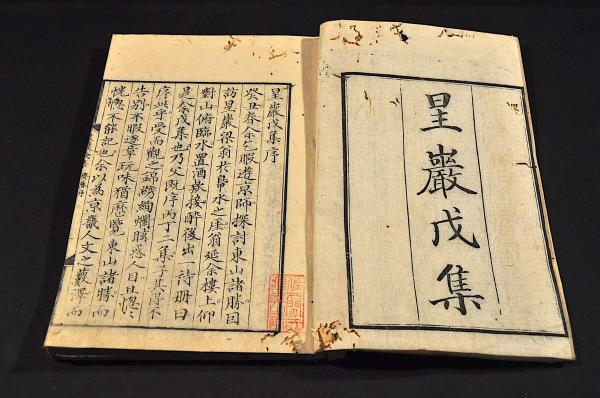 星巖戊集
星巖戊集序
癸丑春余乞暇遊京師探討東山諸勝因
訪星巖梁翁於鴨水之崖翁延余樓上仰
對山俯臨水置酒歡接醉後出一詩冊曰
是余戊集也乃父既序丙丁二集子其得不
序此乎受而觀之錦繡絢爛眩惑人目且
告別不暇逐章玩味猶歷覽東山諸勝而
恍惚不能記也余以為京畿人文之藪澤而